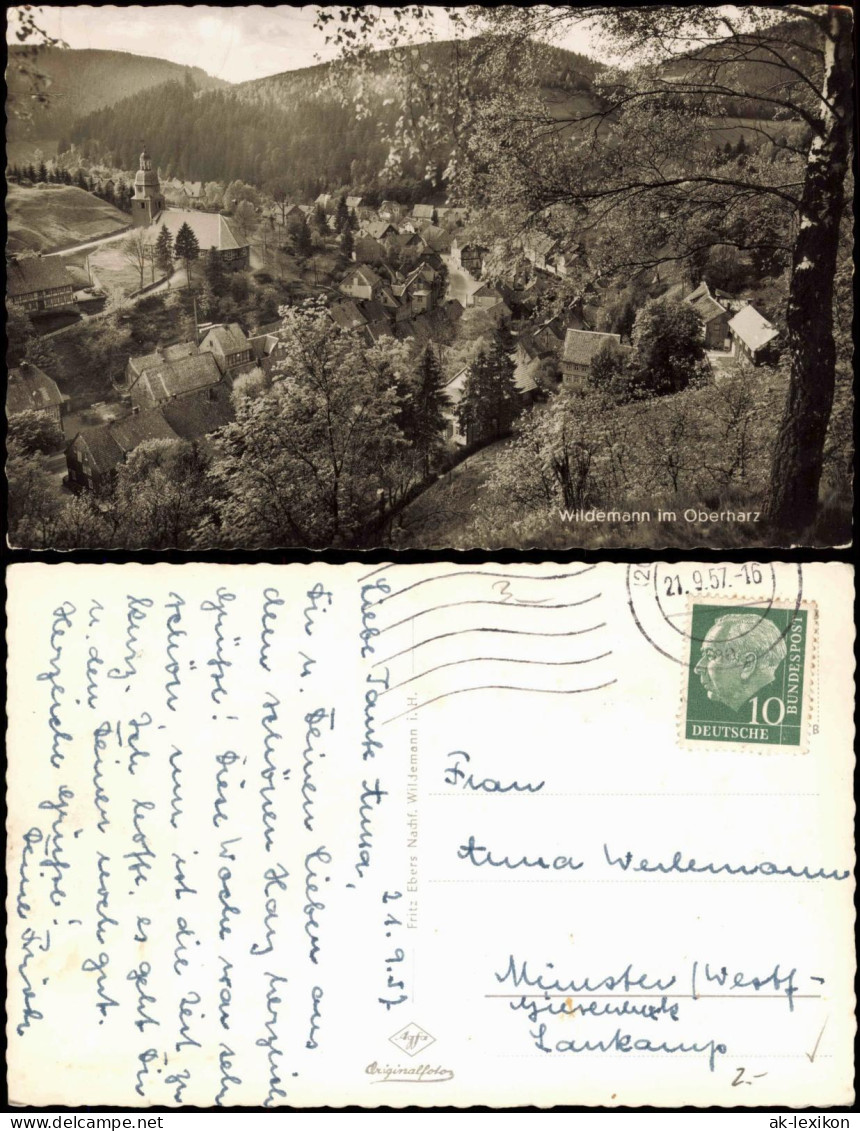 Wildemann im Oberharz
21.9.57.-16
DEUTSCHE
BUNDESPOST
10
Liebe Tante Anna,
21.9.57
Dir u. Deinen Lieben aus
dem schönen Harz herzliche
Grüße! Diese Woche war sehr
schön, nur ist die Zeit zu
kurz. Ich hoffe, es geht Dir
u. den Deinen noch gut.
Herzliche Grüße!
Deine
Fritz Ebers Nachf. Wildemann i. H.
Agfa
Originalfoto
Frau
Anna
Münster/Westf-
2.-
www.ansichtskarten-lexikon.de
ak-lexikon